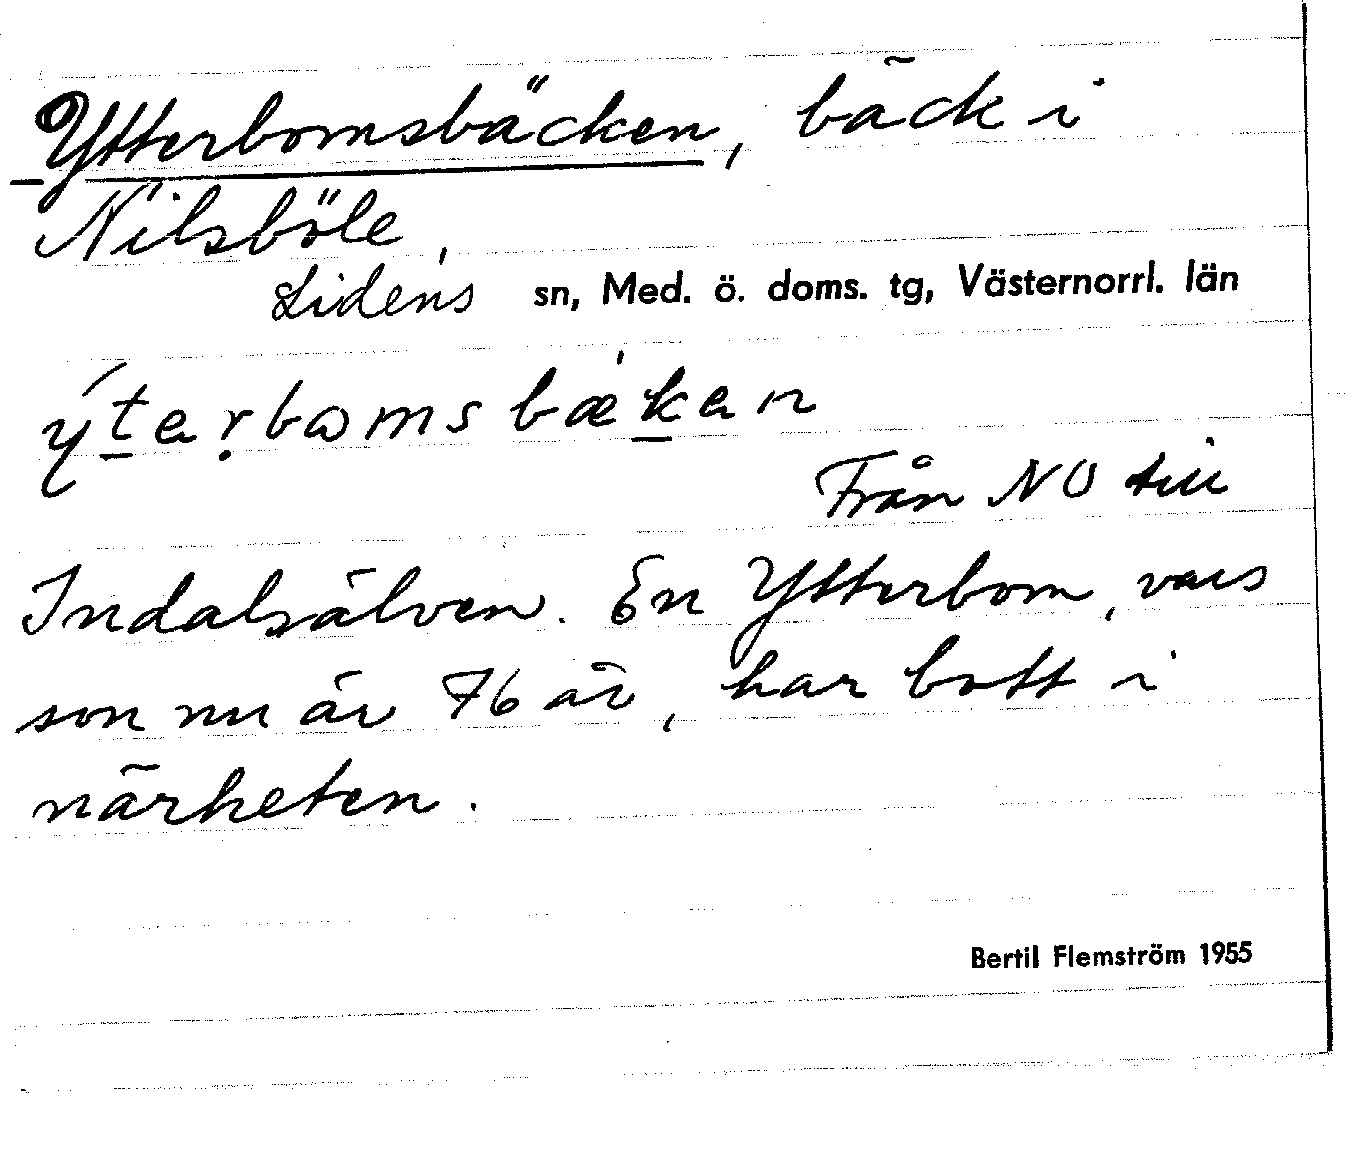 Ytterbomsbäcken, bäck i
Nilsböle,
Lidens sn, Med. ö. doms. tg, Västernorrl. län
ýt̲ạerḅomsbæ̍k̲en
Från NO till
Indalsälven. En Ytterbom, vars
son nu är 76 år, har bott i
närheten.
Bertil Flemström 1955